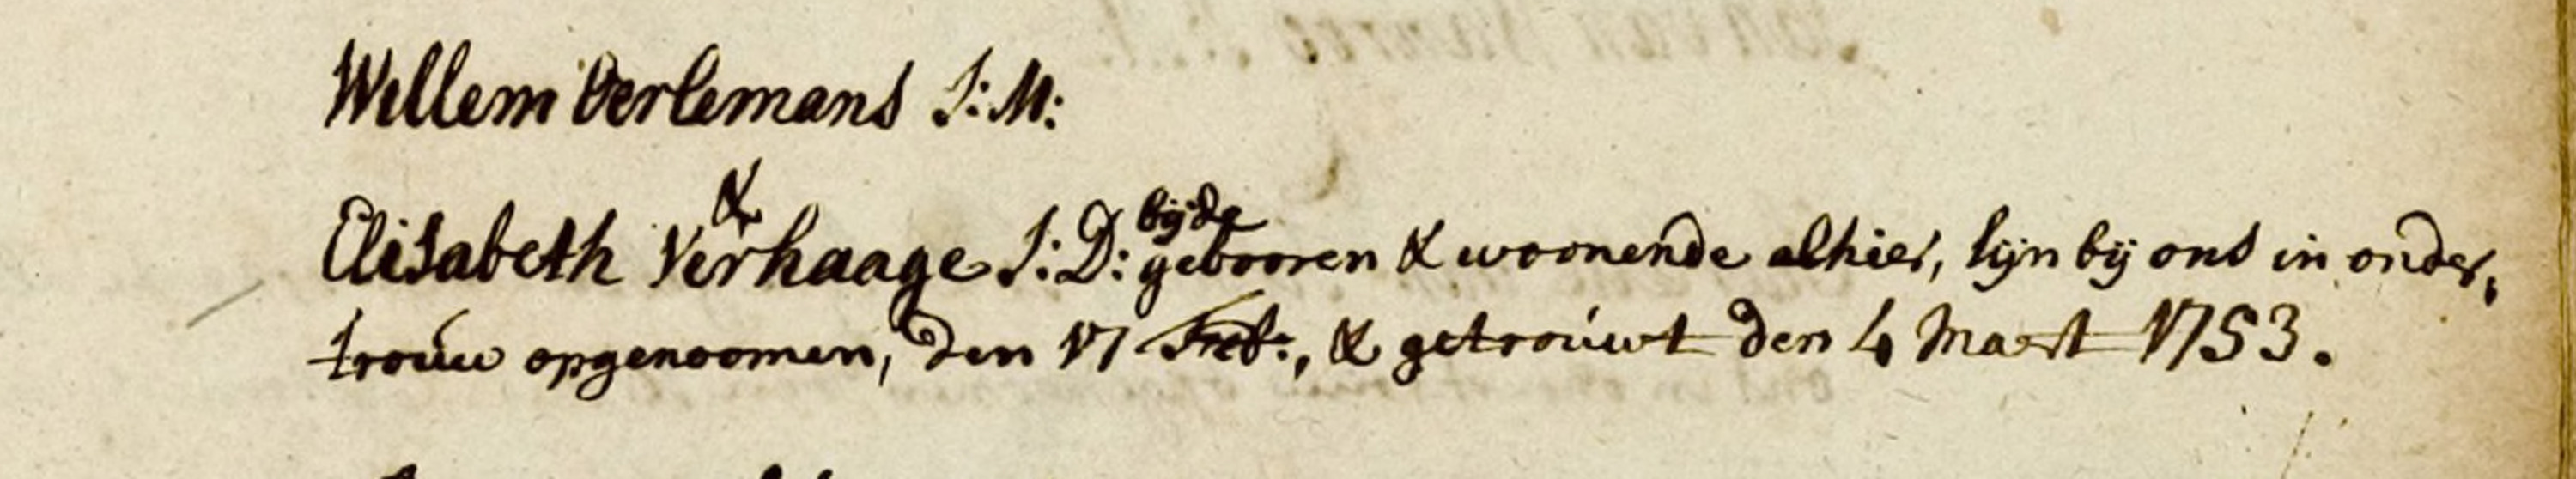 Willem Oerlemans J: M:
&
Elisabeth Verhaage J: D: bijde gebooren & woonende alhier, sijn bij ons in onder,
trouw opgenoomen, den 17 Feb:, & getrouwt den 4 Maart 1753.